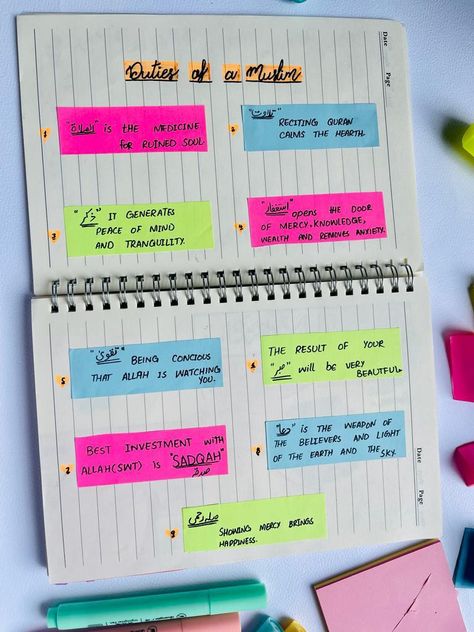 Date
Page
Duties of a Muslim
1
"الصلاة" is THE MEDICINE
FOR RUINED SOUL
2
"تلاوت"
RECITING QURAN
CALMS THE HEARTH.
3
"ذکر" IT GENERATES
PEACE OF MIND
AND TRANQUILITY.
4
"استغفار"
opens THE DOOR
OF MERCY, KNOWLEDGE,
WEALTH AND REMOVES ANXIETY.
5
"تقویٰ" BEING CONCIOUS
THAT ALLAH IS WATCHING
YOU.
6
THE RESULT OF YOUR
"صبر" will be VERY
BEAUTIFUL.
7
BEST INVESTMENT WITH
ALLAH(SWT) IS "SADQAH"
صدقہ
8
"دعا" is THE WEAPON OF
THE BELIEVERS AND LIGHT
OF THE EARTH AND THE SKY.
9
صلہ رحمی
SHOWING MERCY BRINGS
HAPPINESS.
Date
Page